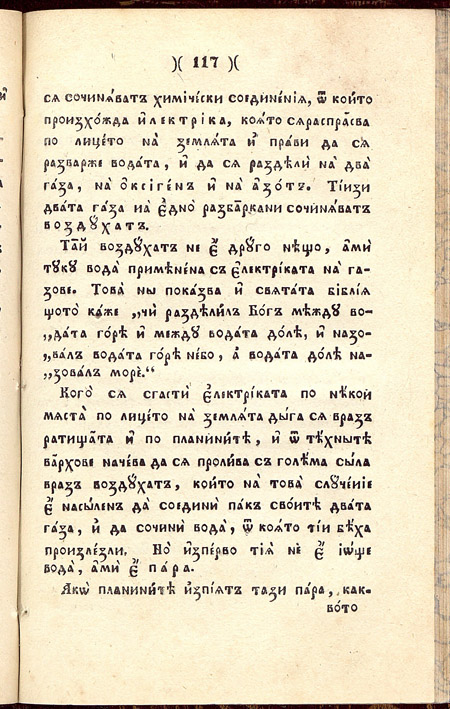 )( 117 )(
сѧ сочинѧ́ватъ химі́чєски соєдинє́нїѧ, ѿ кои́то
произхо́жда и҆лєктрі́ка, коѧ́то сѧраспра́сва
по лицє́то на̀ зємлѧ́та и҆ пра́ви да сѧ
разва́ржє вода́та, и҆ да сѧ раздѣли̂ на̀ два̀
га́за, на̀ о҆ѯігє́нъ и҆ на̀ а҆зо́тъ. Ті́изи
два́та га́за на̀ є҆дно̀ разба̑ркани сочинѧ́ватъ
воздꙋ́хатъ.
Та̑й воздꙋ́хатъ нє є҆̀ дрꙋ́го нѣ́що, а҆́ми
тꙋ́кꙋ вода̀ примѣ́нєна съ є҆лєктрі́ката на̀ га-
зовє. Това̀ ны пока́зва и҆ свѧ́тата библі́ѧ
що́то ка́жє „чи̂ раздѣли́лъ Бо́гъ мє́ждꙋ во-
„да́та го́рѣ и҆ мєждꙋ вода́та до́лѣ, и҆ назо-
„ва́лъ вода́та го́рѣ нє́бо, а҆ вода́та до́лѣ на-
„зова́лъ морє̀.“
Кого̀ сѧ сгасти̂ є҆лєктрі́ката по нѣ́кои
мѧста̀ по лицє́то на̀ зємлѧ́та ды́га сѧ вразъ
ратища̑та и҆ по планини́тѣ, и҆ ѿ тѣ́хнытѣ
ва́рховє начєва да сѧ проли́ва съ голѣ́ма сы́ла
вразъ воздꙋ́хатъ, кои́то на̀ това̀ слꙋчє́нїє
є҆̀ насы́лєнъ да̀ соєдини̂ па́къ своитѣ два́та
га́за, и҆ да̀ сочини̂ вода̀, ѿ коѧ́то ті́и бѣ́ха
произлє́зли. Но̀ и҆зпє́рво ті́ѧ нє̀ є҆̀ і҆ѡ́щє
вода̀, а҆́ми є҆̀ па́ра.
А҆кѡ̀ планини́тѣ и҆зпі́ѧтъ тази па́ра, как-
во́то